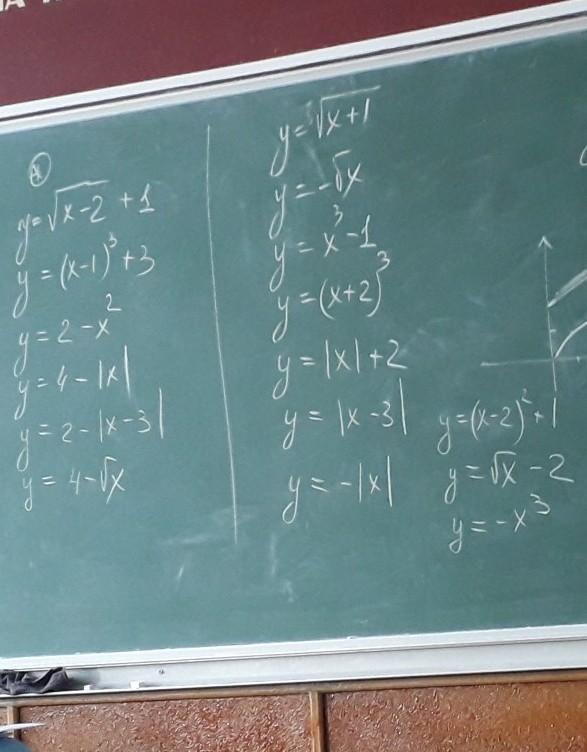 y=√(x-2)+1
y=(x-1)³+3
y=2-x²
y=4-|x|
y=2-|x-3|
y=4-√x
y=√(x+1)
y=-√x
y=x³-1
y=(x+2)³
y=|x|+2
y=|x-3|
y=-|x|
y=(x-2)²+1
y=√x-2
y=-x³